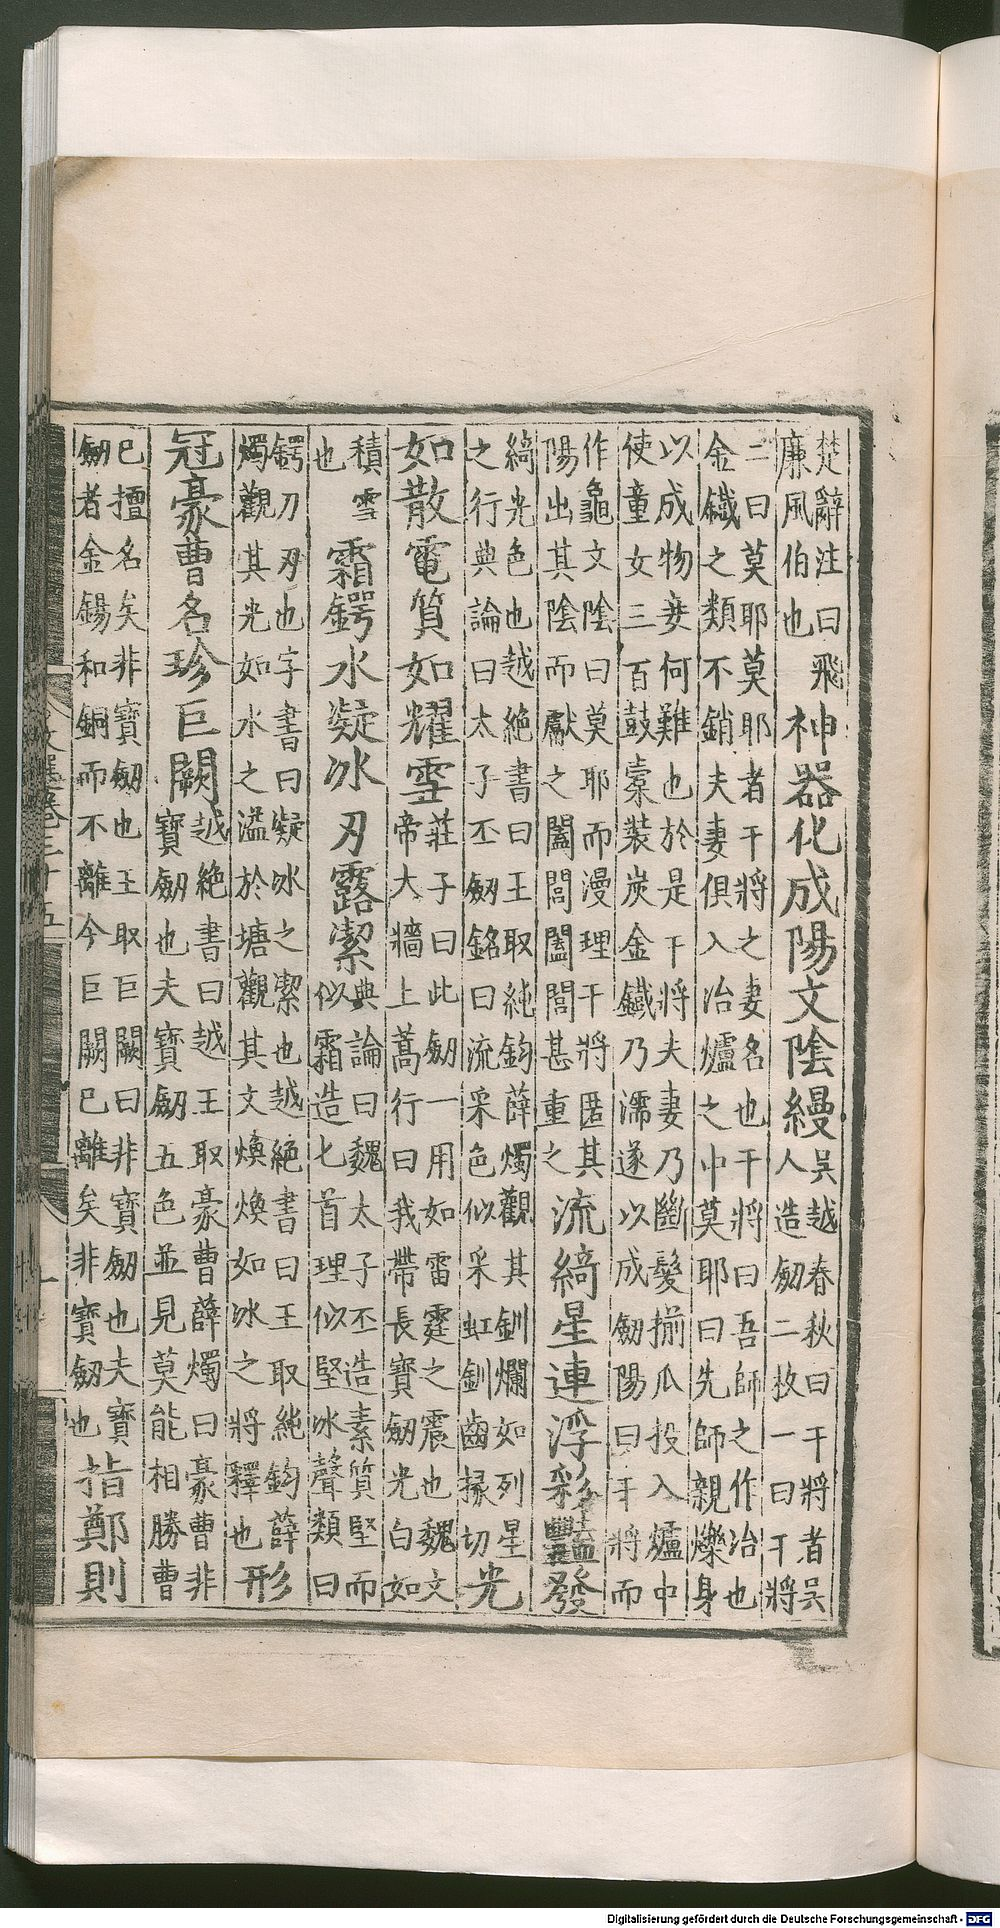 楚辭注曰飛
廉風伯也
神器化成陽文陰縵
吳越春秋曰干將者吳
人造劒二枚一曰干將
二曰莫耶莫耶者干將之妻名也干將曰吾師之作冶也
金鐵之類不銷夫妻俱入冶爐之中莫耶曰先師親爍身
以成物妾何難也於是干將夫妻乃斷髮揃爪投入爐中
使童女三百鼓橐裝炭金鐵乃濡遂以成劒陽曰干將而
作龜文陰曰莫耶而漫理干將匿其
陽出其陰而獻之闔閭闔閭甚重之
流綺星連浮彩豔發
綺光色也越絕書曰王取純鈞薛燭觀其釽爛如列星
之行典論曰太子丕劒銘曰流采色似采虹釽齒掾切
光
如散電質如耀雪
莊子曰此劒一用如雷霆之震也魏文
帝大牆上蒿行曰我帶長寶劒光白如
積雪
也
霜鍔水凝冰刃露潔
典論曰魏太子丕造素質堅而
似霜造七首理似堅冰聲類曰
鍔刀刃也字書曰凝冰之潔也越絕書曰王取純鈞薛
燭觀其光如水之溢於塘觀其文煥煥如冰之將釋也
形
冠豪曹名珍巨闕
越絕書曰越王取豪曹薛燭曰豪曹非
寶劒也夫寶劒五色並見莫能相勝曹
已擅名矣非寶劒也王取巨闕曰非寶劒也夫寶
劒者金錫和銅而不離今巨闕已離矣非寶劒也
指鄭則
Digitalisierung gefördert durch die Deutsche Forschungsgemeinschaft - DFG